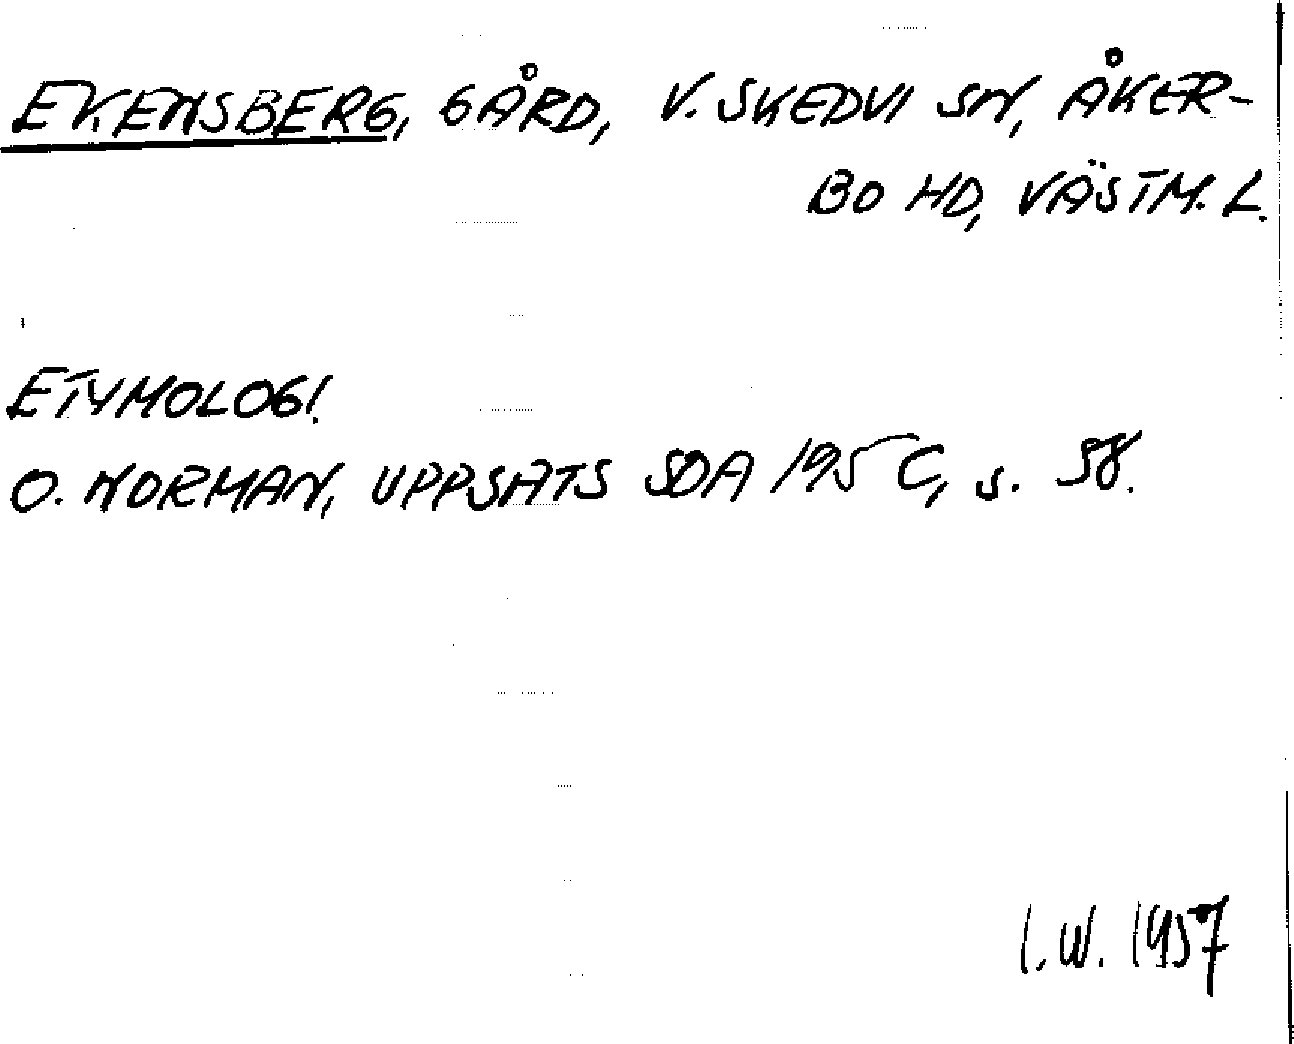 EKENSBERG, GÅRD, V. SKEDVI SN, ÅKER-
BO HD, VÄSTM. L.
ETYMOLOGI.
O. NORMAN, UPPSATS SOA 195 C, s. 58.
I. W. 1957